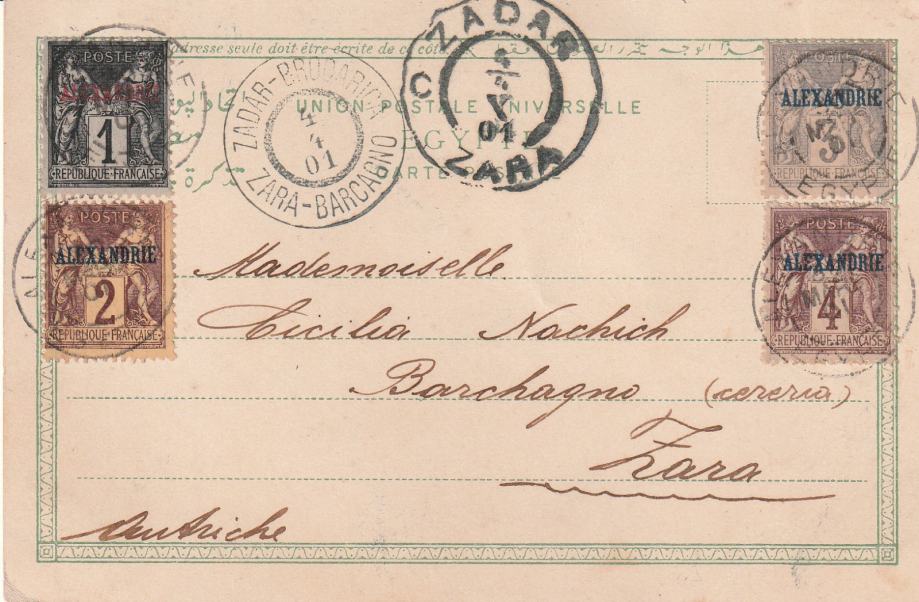 adresse seule doit être écrite de ce côté
UNION POSTALE UNIVERSELLE
EGYPTE
POSTE
ALEXANDRIE
1
RÉPUBLIQUE FRANÇAISE
POSTE
ALEXANDRIE
2
RÉPUBLIQUE FRANÇAISE
ALEXANDRIE
3
RÉPUBLIQUE FRANÇAISE
POSTE
ALEXANDRIE
4
RÉPUBLIQUE FRANÇAISE
ZADAR-BRODARICA
4
4
01
ZARA-BARCAGNO
ZADAR
4
4
01
ZARA
EGYPTE
Mademoiselle
Cicilia Nachich
Barchagno (cereria)
Zara
Autriche